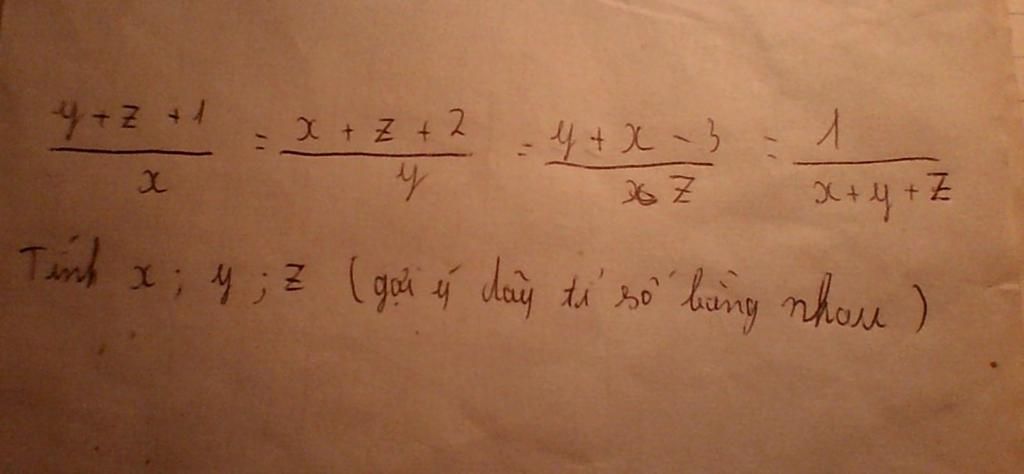 y+z+1/x = x+z+2/y = y+x-3/z = 1/x+y+z
Tính x; y; z (gợi ý dãy tỉ số bằng nhau)